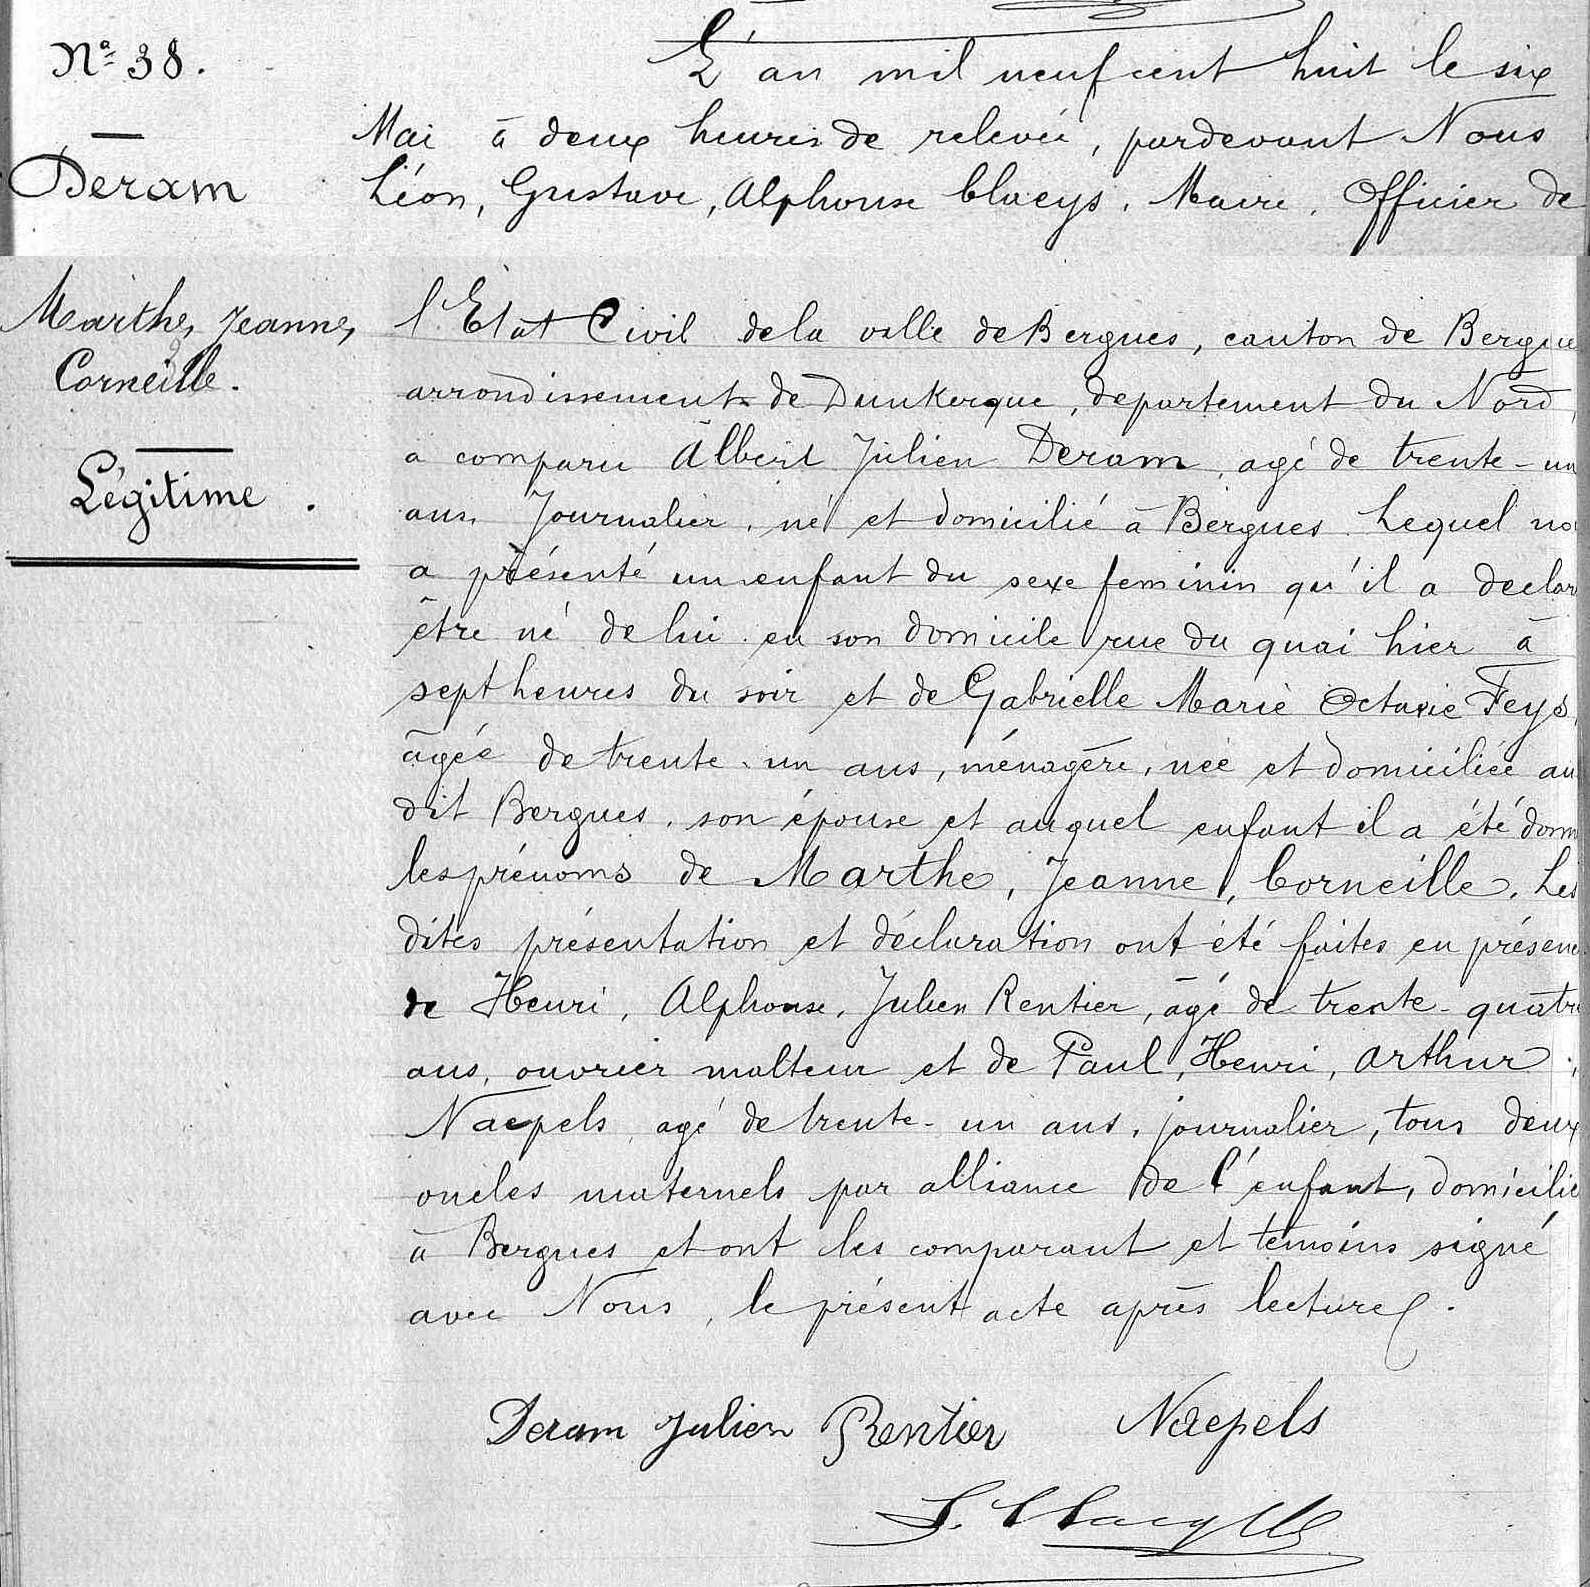 Nº 38.
Deram
Marthe, Jeanne,
Corneille.
Légitime.
L'an mil neuf cent huit le six
Mai à deux heures de relevée, pardevant Nous
Léon, Gustave, Alphonse Claeys, Maire, Officier de
l'Etat Civil de la ville de Bergues, canton de Bergue
arrondissement de Dunkerque, departement du Nord,
a comparu Albert Julien Deram, agé de trente-un
ans, Journalier, né et domicilié à Bergues. Lequel no
a présenté un enfant du sexe feminin qu'il a declar
être né de lui en son domicile rue du quai hier à
sept heures du soir et de Gabrielle Marie Octavie Feys,
âgée de trente-un ans, ménagère, née et domiciliée au
dit Bergues, son épouse et auquel enfant il a été donn
les prénoms de Marthe, Jeanne, Corneille. Les
dites présentation et déclaration ont été faites en présenc
de Henri, Alphonse, Julien Rentier, âgé de trente-quatre
ans, ouvrier malteur et de Paul, Henri, Arthur,
Naepels, agé de trente-un ans, journalier, tous deux
oncles maternels par alliance de l'enfant, domicilié
à Bergues et ont les comparant et témoins signé
avec Nous, le présent acte après lecture.
Deram Julien Rentier Naepels
L. Claeys